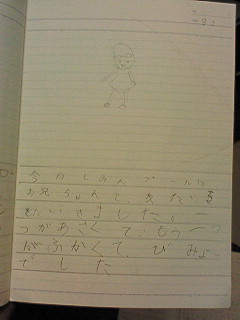 今日しみんプールに
お兄ちゃんと、友だち
といきました。一
つがあさくて、もう一つ
がふかくて、びみょう
でした